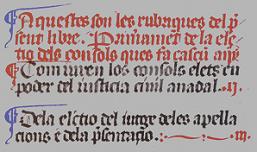 Aquestes son les rubriques del p̃
sent libre. Primament de la elec
tio dels consols que fa cascũ any
Com juren los consols elets en
poder del iusticia ciuil anadal .ij.
Dela electio del iutge deles apella
cions e dela p̃sentatio. iij.